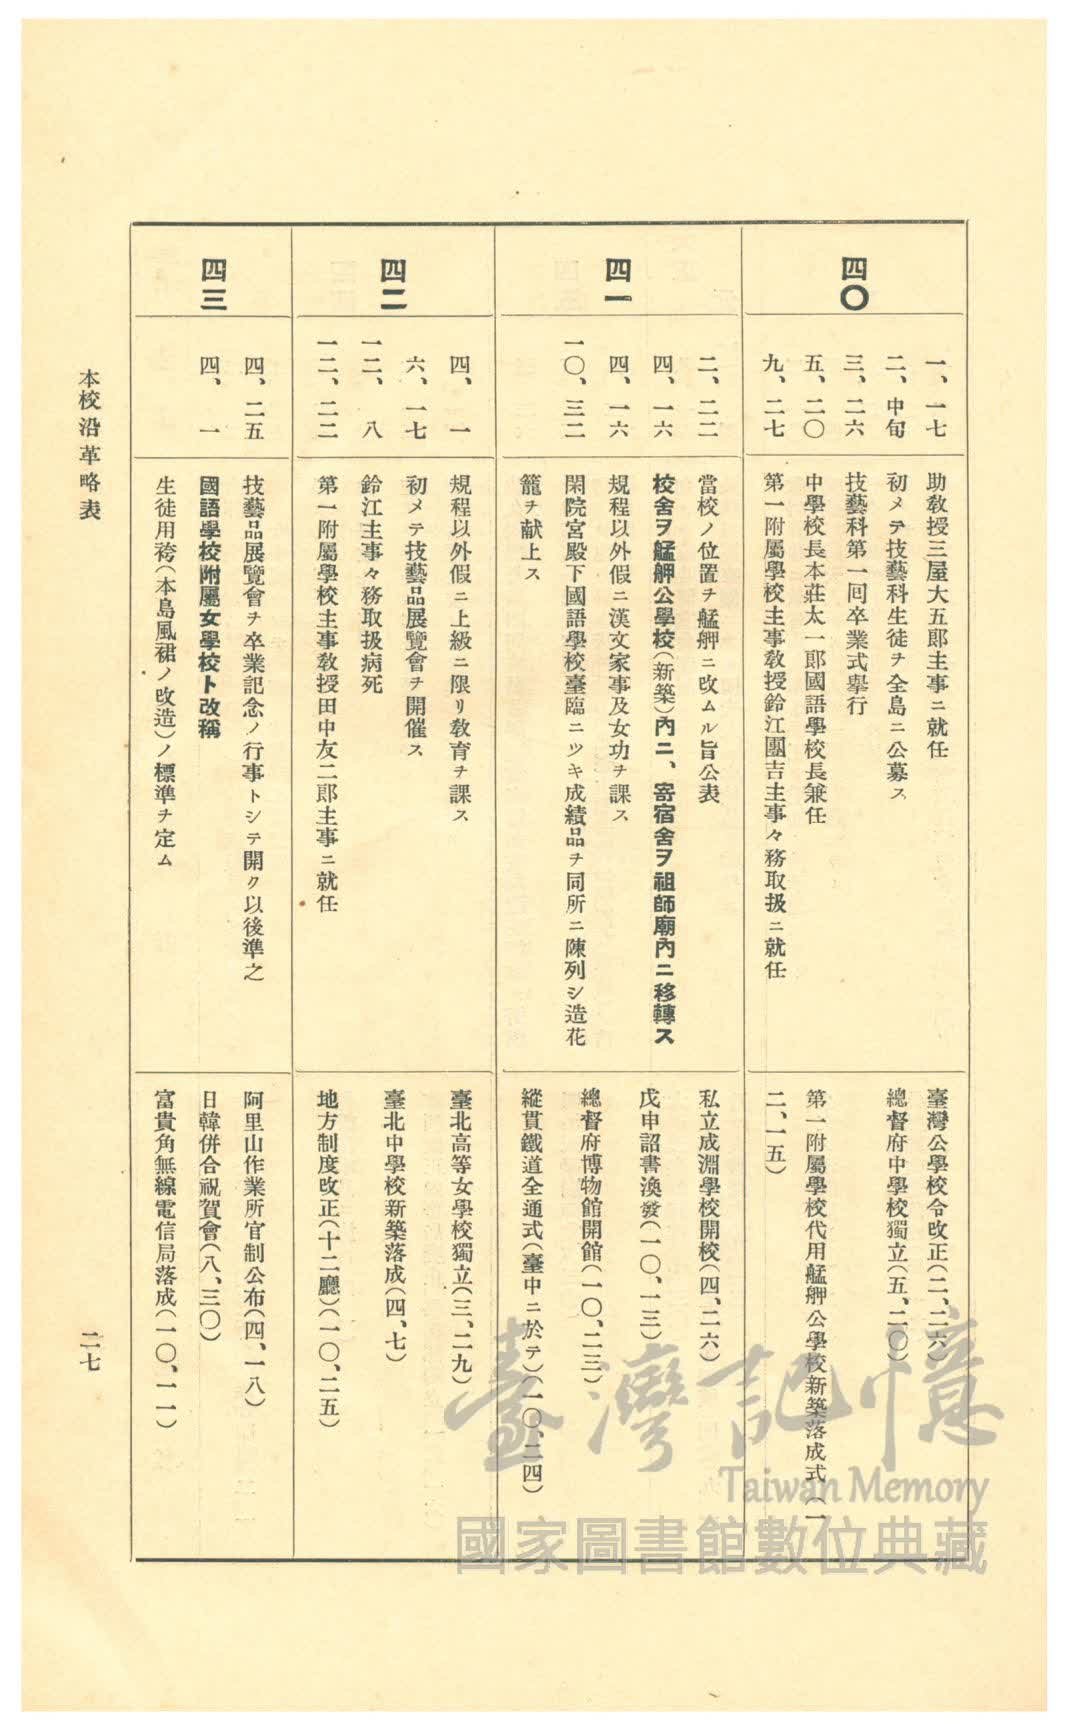 四〇
一、一七
助敎授三屋大五郎主事ニ就任
二、中旬
初メテ技藝科生徒ヲ全島ニ公募ス
三、二六
技藝科第一囘卒業式擧行
五、二〇
中學校長本莊太一郎國語學校長兼任
九、二七
第一附屬學校主事敎授鈴江團吉主事々務取扱ニ就任
臺灣公學校令改正(二、二六)
總督府中學校獨立(五、二〇)
第一附屬學校代用艋舺公學校新築落成式(一
二、一五)
四一
二、二二
當校ノ位置ヲ艋舺ニ改ムル旨公表
四、一六
校舍ヲ艋舺公學校(新築)內ニ、寄宿舍ヲ祖師廟內ニ移轉ス
四、一六
規程以外假ニ漢文家事及女功ヲ課ス
一〇、三二
閑院宮殿下國語學校臺臨ニツキ成績品ヲ同所ニ陳列シ造花
籠ヲ獻上ス
私立成淵學校開校(四、二六)
戊申詔書渙發(一〇、一三)
總督府博物館開館(一〇、二三)
縱貫鐵道全通式(臺中ニ於テ)(一〇、二四)
四二
四、一
規程以外假ニ上級ニ限リ敎育ヲ課ス
六、一七
初メテ技藝品展覽會ヲ開催ス
一二、八
鈴江主事々務取扱病死
一二、二二
第一附屬學校主事敎授田中友二郎主事ニ就任
臺北高等女學校獨立(三、二九)
臺北中學校新築落成(四、七)
地方制度改正(十二廳)(一〇、二五)
四三
四、二五
技藝品展覽會ヲ卒業記念ノ行事トシテ開ク以後準之
四、一
國語學校附屬女學校ト改稱
生徒用袴(本島風裙ノ改造)ノ標準ヲ定ム
阿里山作業所官制公布(四、一八)
日韓併合祝賀會(八、三〇)
富貴角無線電信局落成(一〇、一一)
本校沿革略表
二七
臺灣記憶
Taiwan Memory
國家圖書館數位典藏